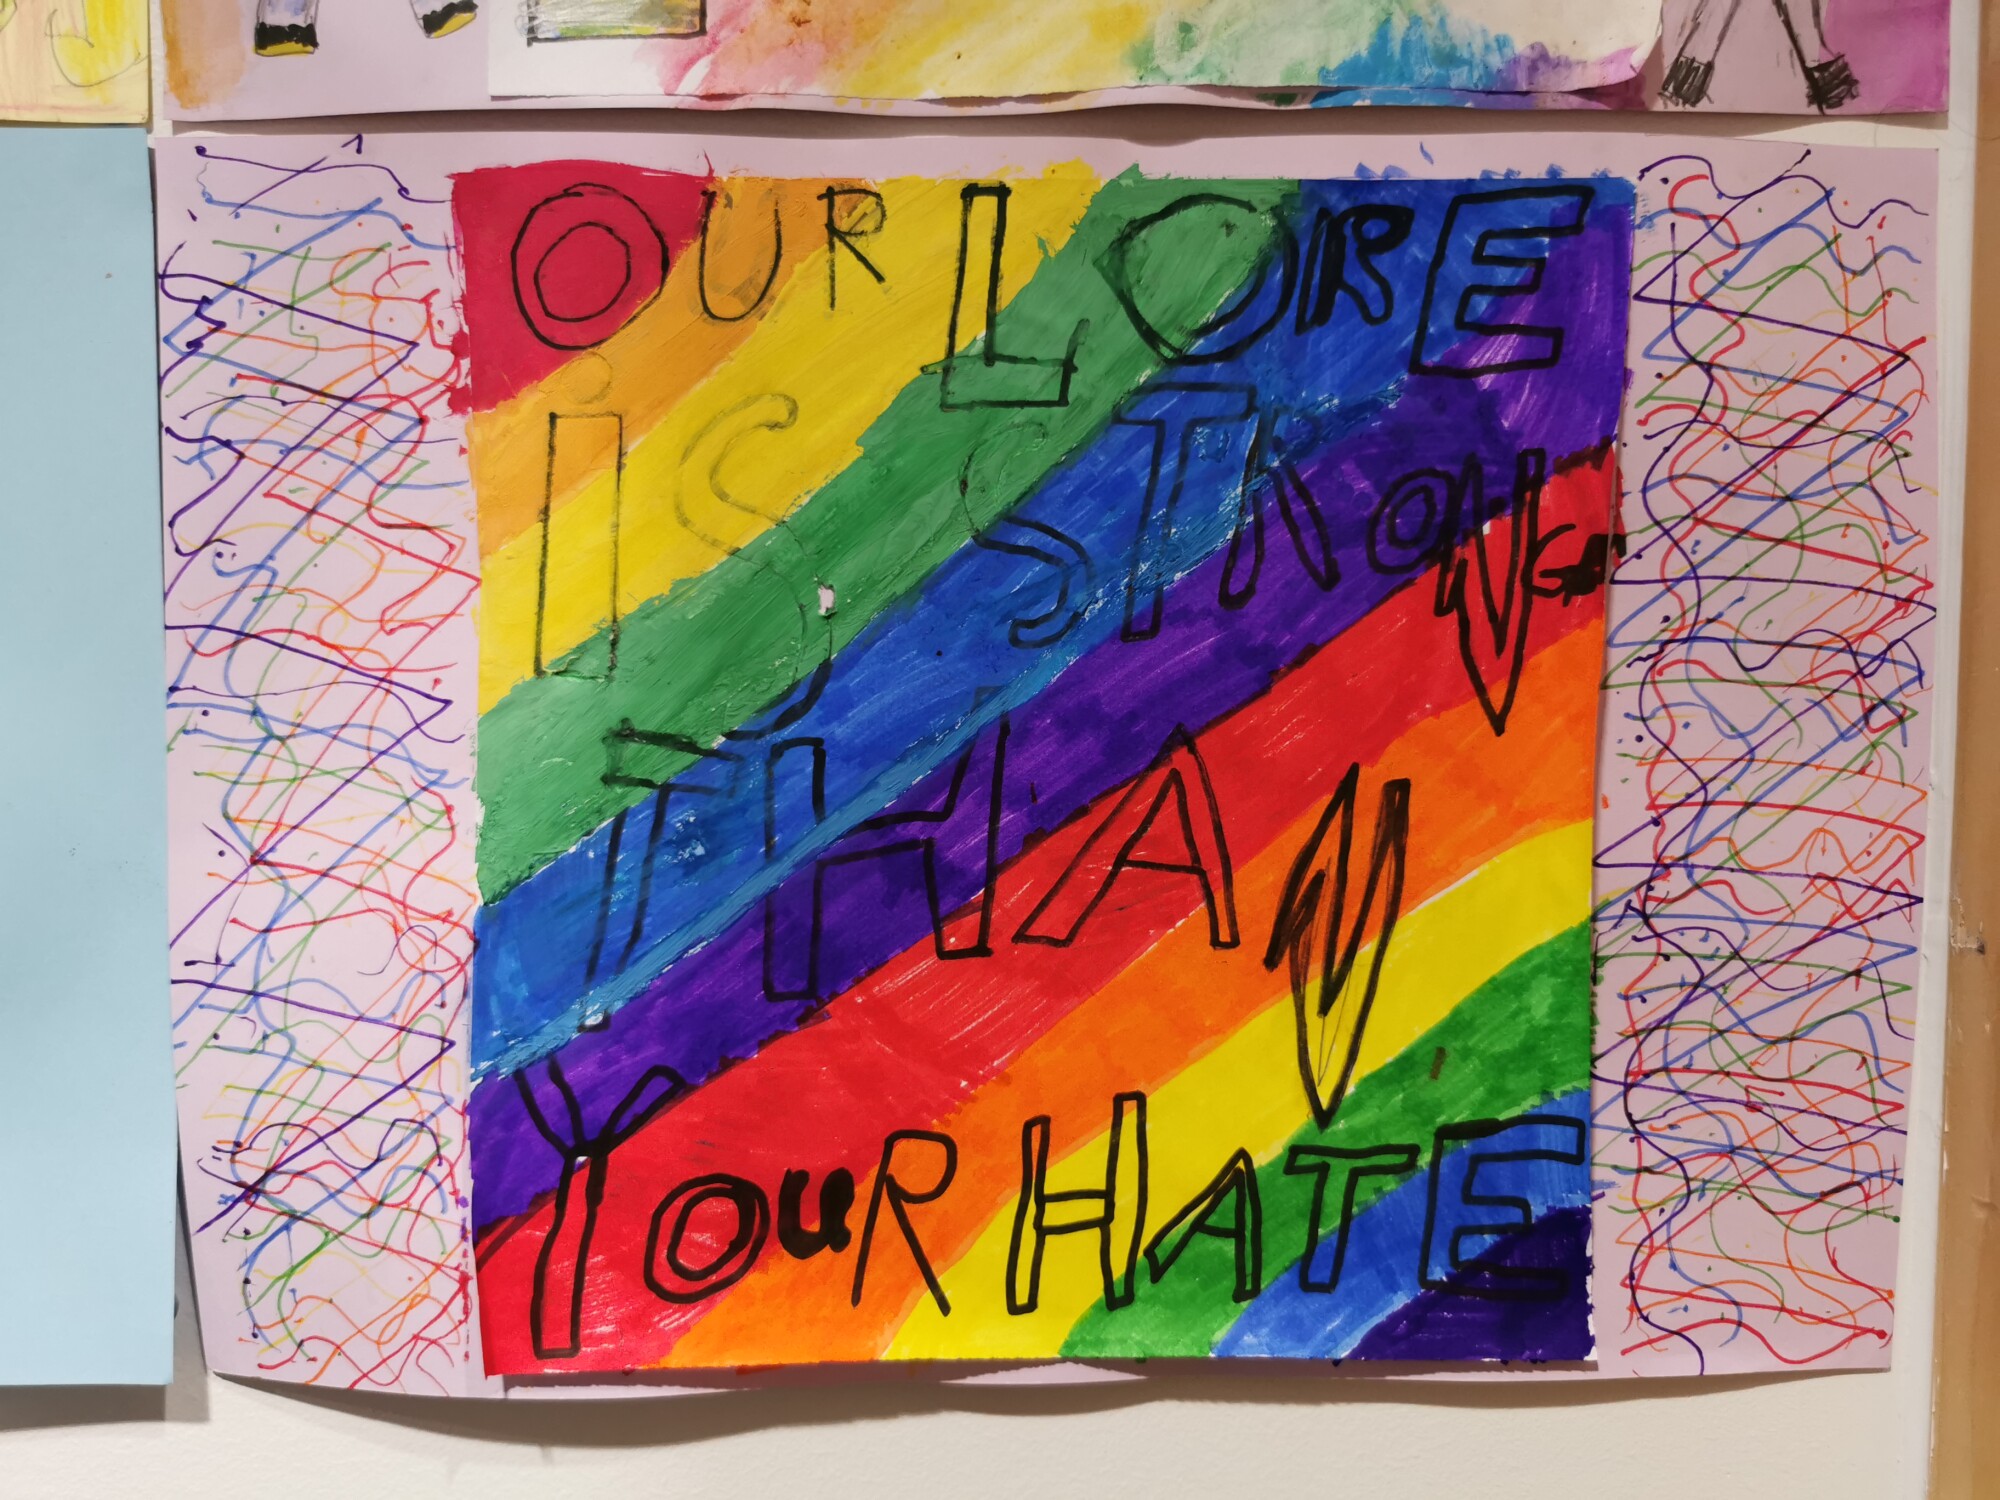 OUR LORE
iS STRONGER
THAN
YOuR HATE